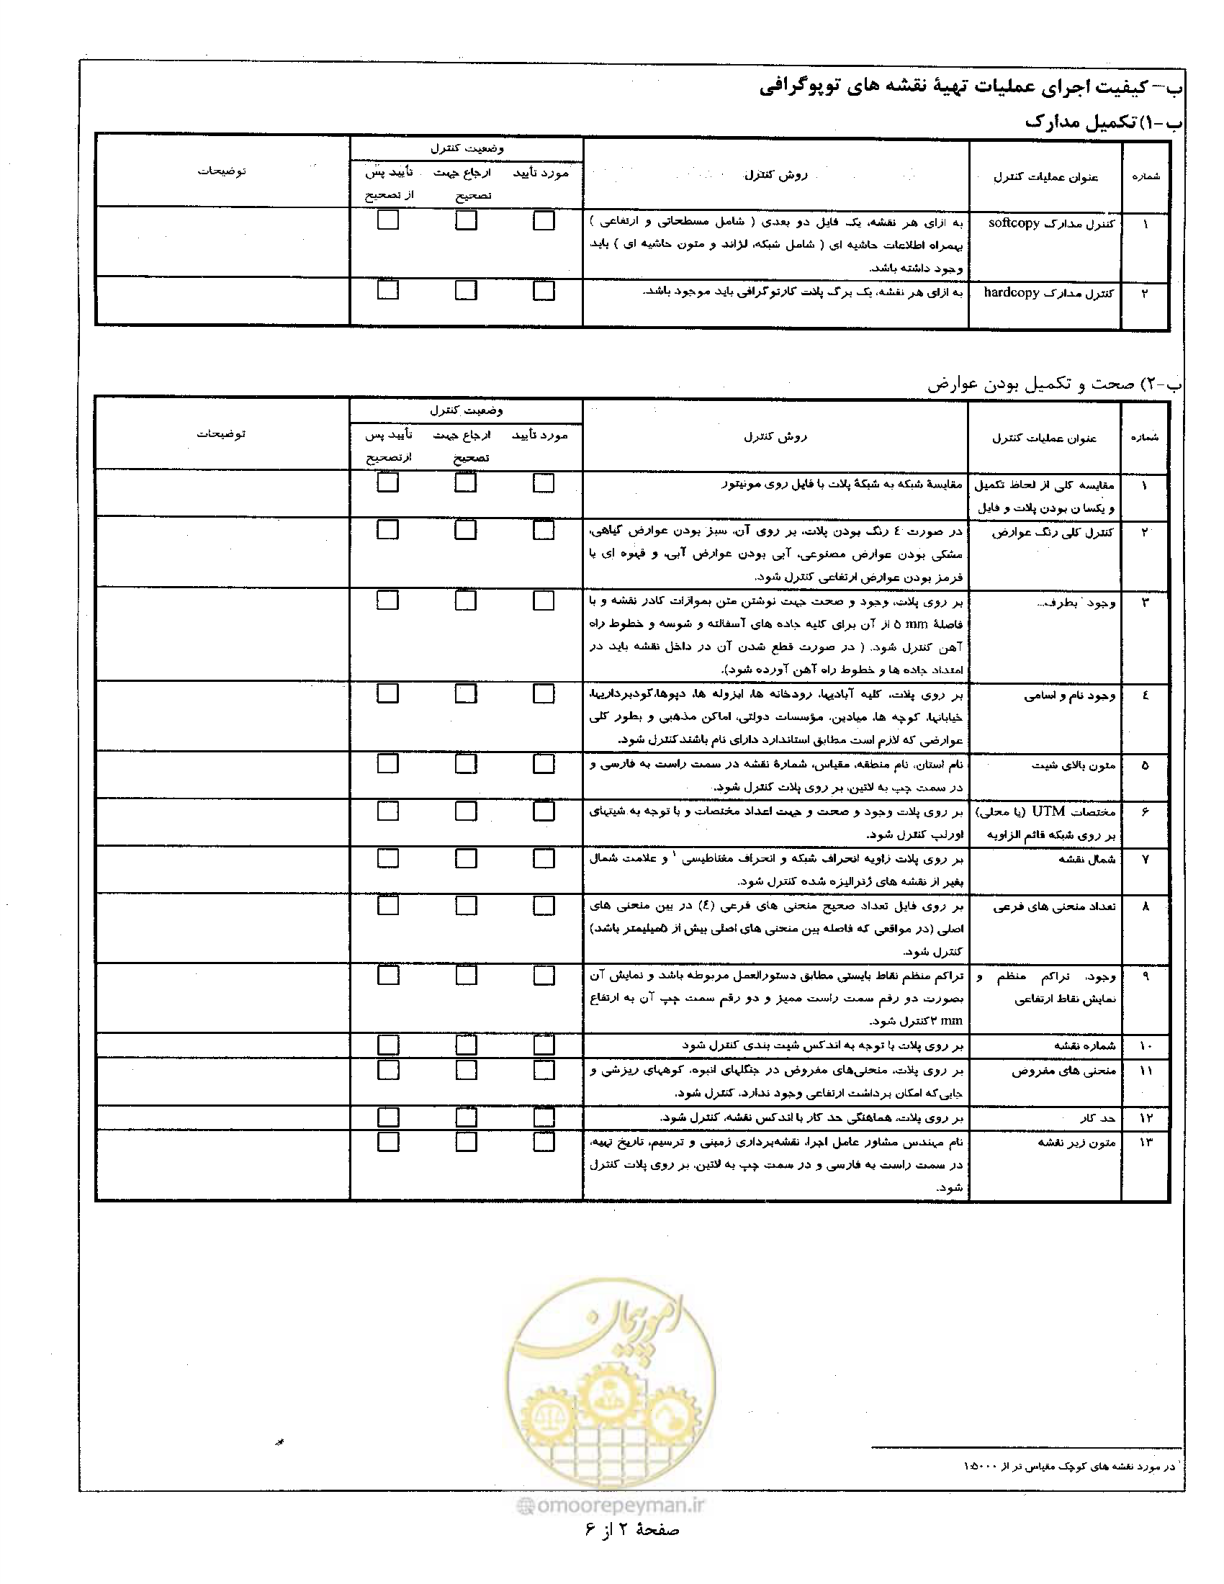 ب- کیفیت اجرای عملیات تهیۀ نقشه های توپوگرافی
ب-۱) تکمیل مدارک
شماره
عنوان عملیات کنترل
روش کنترل
وضعیت کنترل
مورد تأیید
ارجاع جهت
تصحیح
تأیید پس
از تصحیح
توضیحات
۱
کنترل مدارک softcopy
به ازای هر نقشه، یک فایل دو بعدی ( شامل مسطحاتی و ارتفاعی )
بهمراه اطلاعات حاشیه ای ( شامل شبکه، لژاند و متون حاشیه ای ) باید
وجود داشته باشد.
۲
کنترل مدارک hardcopy
به ازای هر نقشه، یک برگ پلات کارتوگرافی باید موجود باشد.
ب-۲) صحت و تکمیل بودن عوارض
شماره
عنوان عملیات کنترل
روش کنترل
وضعیت کنترل
مورد تأیید
ارجاع جهت
تصحیح
تأیید پس
ازتصحیح
توضیحات
۱
مقایسه کلی از لحاظ تکمیل
و یکسان بودن پلات و فایل
مقایسۀ شبکه به شبکۀ پلات با فایل روی مونیتور
۲
کنترل کلی رنگ عوارض
در صورت ٤ رنگ بودن پلات، بر روی آن، سبز بودن عوارض گیاهی،
مشکی بودن عوارض مصنوعی، آبی بودن عوارض آبی، و قهوه ای یا
قرمز بودن عوارض ارتفاعی کنترل شود.
۳
وجود بطرف...
بر روی پلات، وجود و صحت جهت نوشتن متن بموازات کادر نقشه و با
فاصلۀ ۵ mm از آن برای کلیه جاده های آسفالته و شوسه و خطوط راه
آهن کنترل شود. ( در صورت قطع شدن آن در داخل نقشه باید در
امتداد جاده ها و خطوط راه آهن آورده شود).
٤
وجود نام و اسامی
بر روی پلات، کلیه آبادیها، رودخانه ها، ایزوله ها، دپوها،گودبرداریها،
خیابانها، کوچه ها، میادین، مؤسسات دولتی، اماکن مذهبی و بطور کلی
عوارضی که لازم است مطابق استاندارد دارای نام باشند کنترل شود.
۵
متون بالای شیت
نام استان، نام منطقه، مقیاس، شمارۀ نقشه در سمت راست به فارسی و
در سمت چپ به لاتین، بر روی پلات کنترل شود.
۶
مختصات UTM (یا محلی)
بر روی شبکه قائم الزاویه
بر روی پلات وجود و صحت و جهت اعداد مختصات و با توجه به شیتهای
اورلپ کنترل شود.
۷
شمال نقشه
بر روی پلات زاویه انحراف شبکه و انحراف مغناطیسی ۱ و علامت شمال
بغیر از نقشه های ژنرالیزه شده کنترل شود.
۸
تعداد منحنی های فرعی
بر روی فایل تعداد صحیح منحنی های فرعی (٤) در بین منحنی های
اصلی (در مواقعی که فاصله بین منحنی های اصلی بیش از ۵میلیمتر باشد)
کنترل شود.
۹
وجود، تراکم منظم و
نمایش نقاط ارتفاعی
تراکم منظم نقاط بایستی مطابق دستورالعمل مربوطه باشد و نمایش آن
بصورت دو رقم سمت راست ممیز و دو رقم سمت چپ آن به ارتفاع
۲ mm کنترل شود.
۱۰
شماره نقشه
بر روی پلات با توجه به اندکس شیت بندی کنترل شود
۱۱
منحنی های مفروض
بر روی پلات، منحنی‌های مفروض در جنگلهای انبوه، کوههای ریزشی و
جایی‌که امکان برداشت ارتفاعی وجود ندارد، کنترل شود.
۱۲
حد کار
بر روی پلات، هماهنگی حد کار با اندکس نقشه، کنترل شود.
۱۳
متون زیر نقشه
نام مهندس مشاور عامل اجرا، نقشه‌برداری زمینی و ترسیم، تاریخ تهیه،
در سمت راست به فارسی و در سمت چپ به لاتین، بر روی پلات کنترل
شود.
امور پیمان
۱ در مورد نقشه های کوچک مقیاس تر از ۱:۵۰۰۰
omoorepeyman.ir
صفحۀ ۲ از ۶